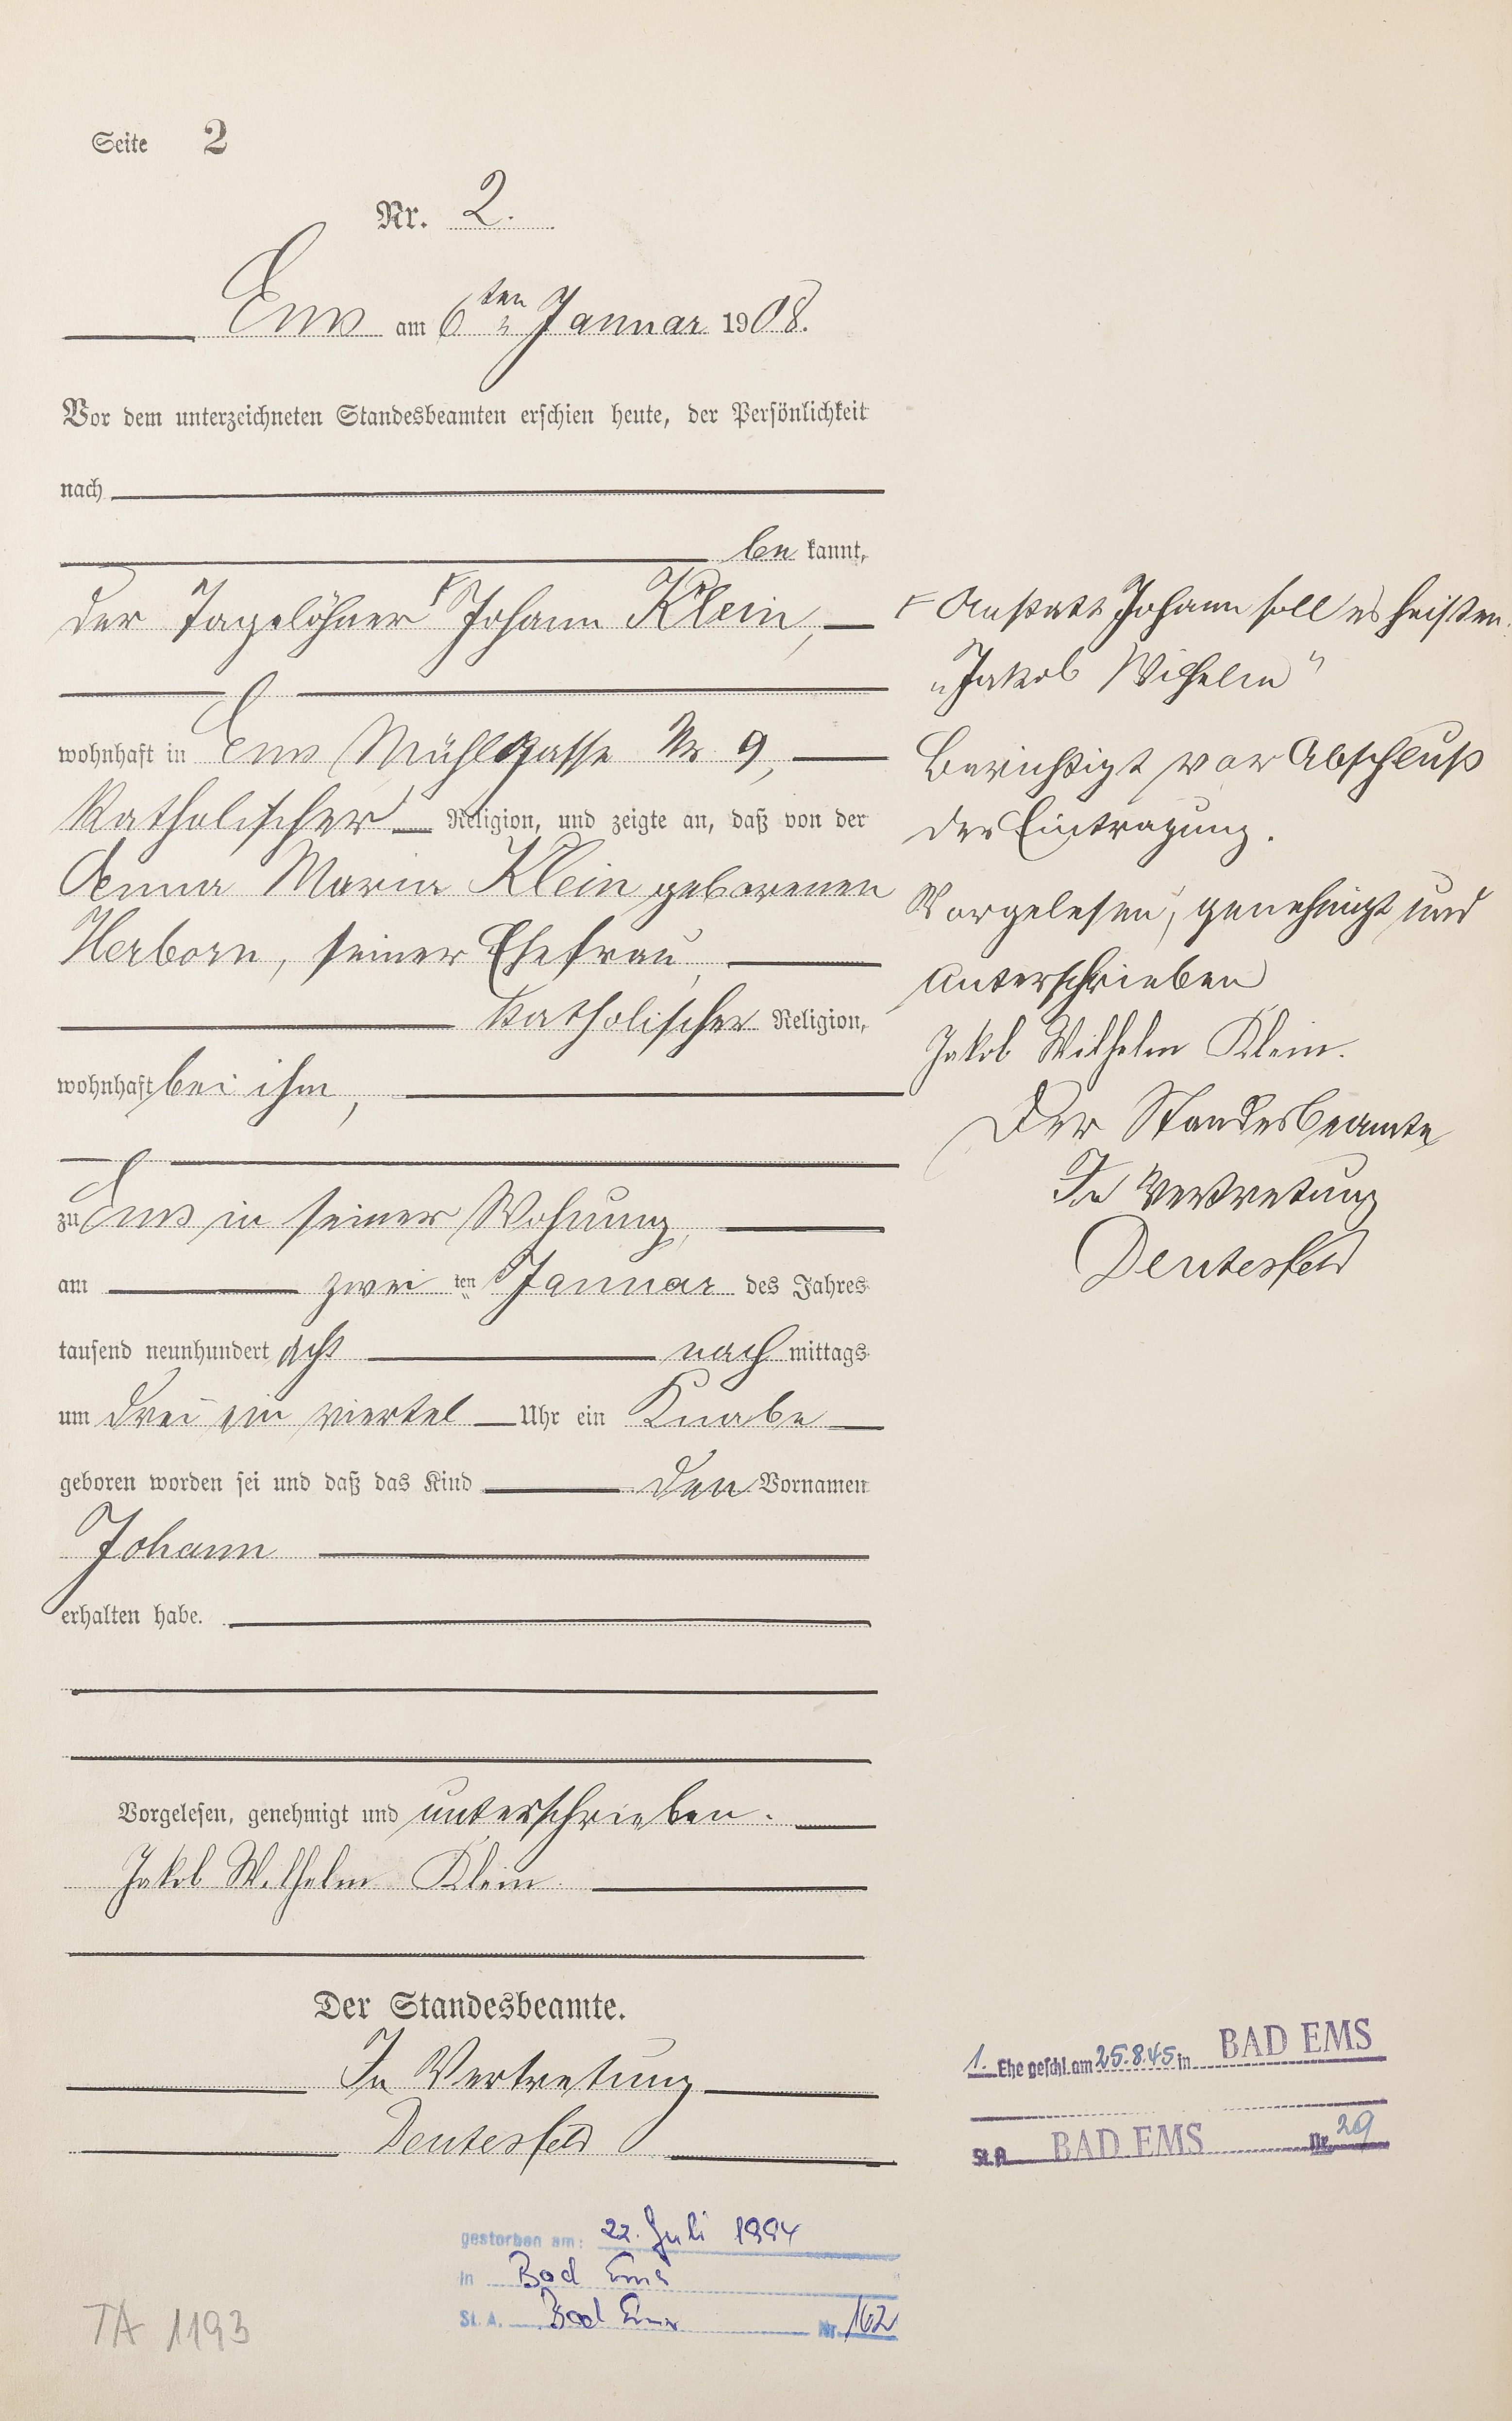 Seite 2
Nr. 2.
Ems am 6ten Januar 1908.
Vor dem unterzeichneten Standesbeamten erschien heute, der Persönlichkeit
nach
be kannt,
der Tagelöhner Johann Klein,
wohnhaft in Ems Mühlgasse Nr. 9,
katholischer Religion, und zeigte an, daß von der
Anna Maria Klein geborenen
Herborn, seiner Ehefrau,
katholischer Religion,
wohnhaft bei ihm,
zu Ems in seiner Wohnung,
am zwei ten Januar des Jahres
tausend neunhundert acht nach mittags
um drei ein viertel Uhr ein Knabe
geboren worden sei und daß das Kind den Vornamen
Johann
erhalten habe.
Vorgelesen, genehmigt und unterschrieben.
Jakob Wilhelm Klein.
Der Standesbeamte.
In Vertretung
Deutesfeld
Anstatt Johann soll es heißen
„Jakob Wilhelm"
Berichtigt vor Abschluß
der Eintragung.
Vorgelesen, genehmigt und
unterschrieben
Jakob Wilhelm Klein.
Der Standesbeamte
In Vertretung
Deutesfeld
1. Ehe geschl. am 25.8.45 in BAD EMS
St. A. BAD EMS Nr. 29
gestorben am: 22. Juli 1994
in Bad Ems
St. A. Bad Ems Nr. 162
TA 1193